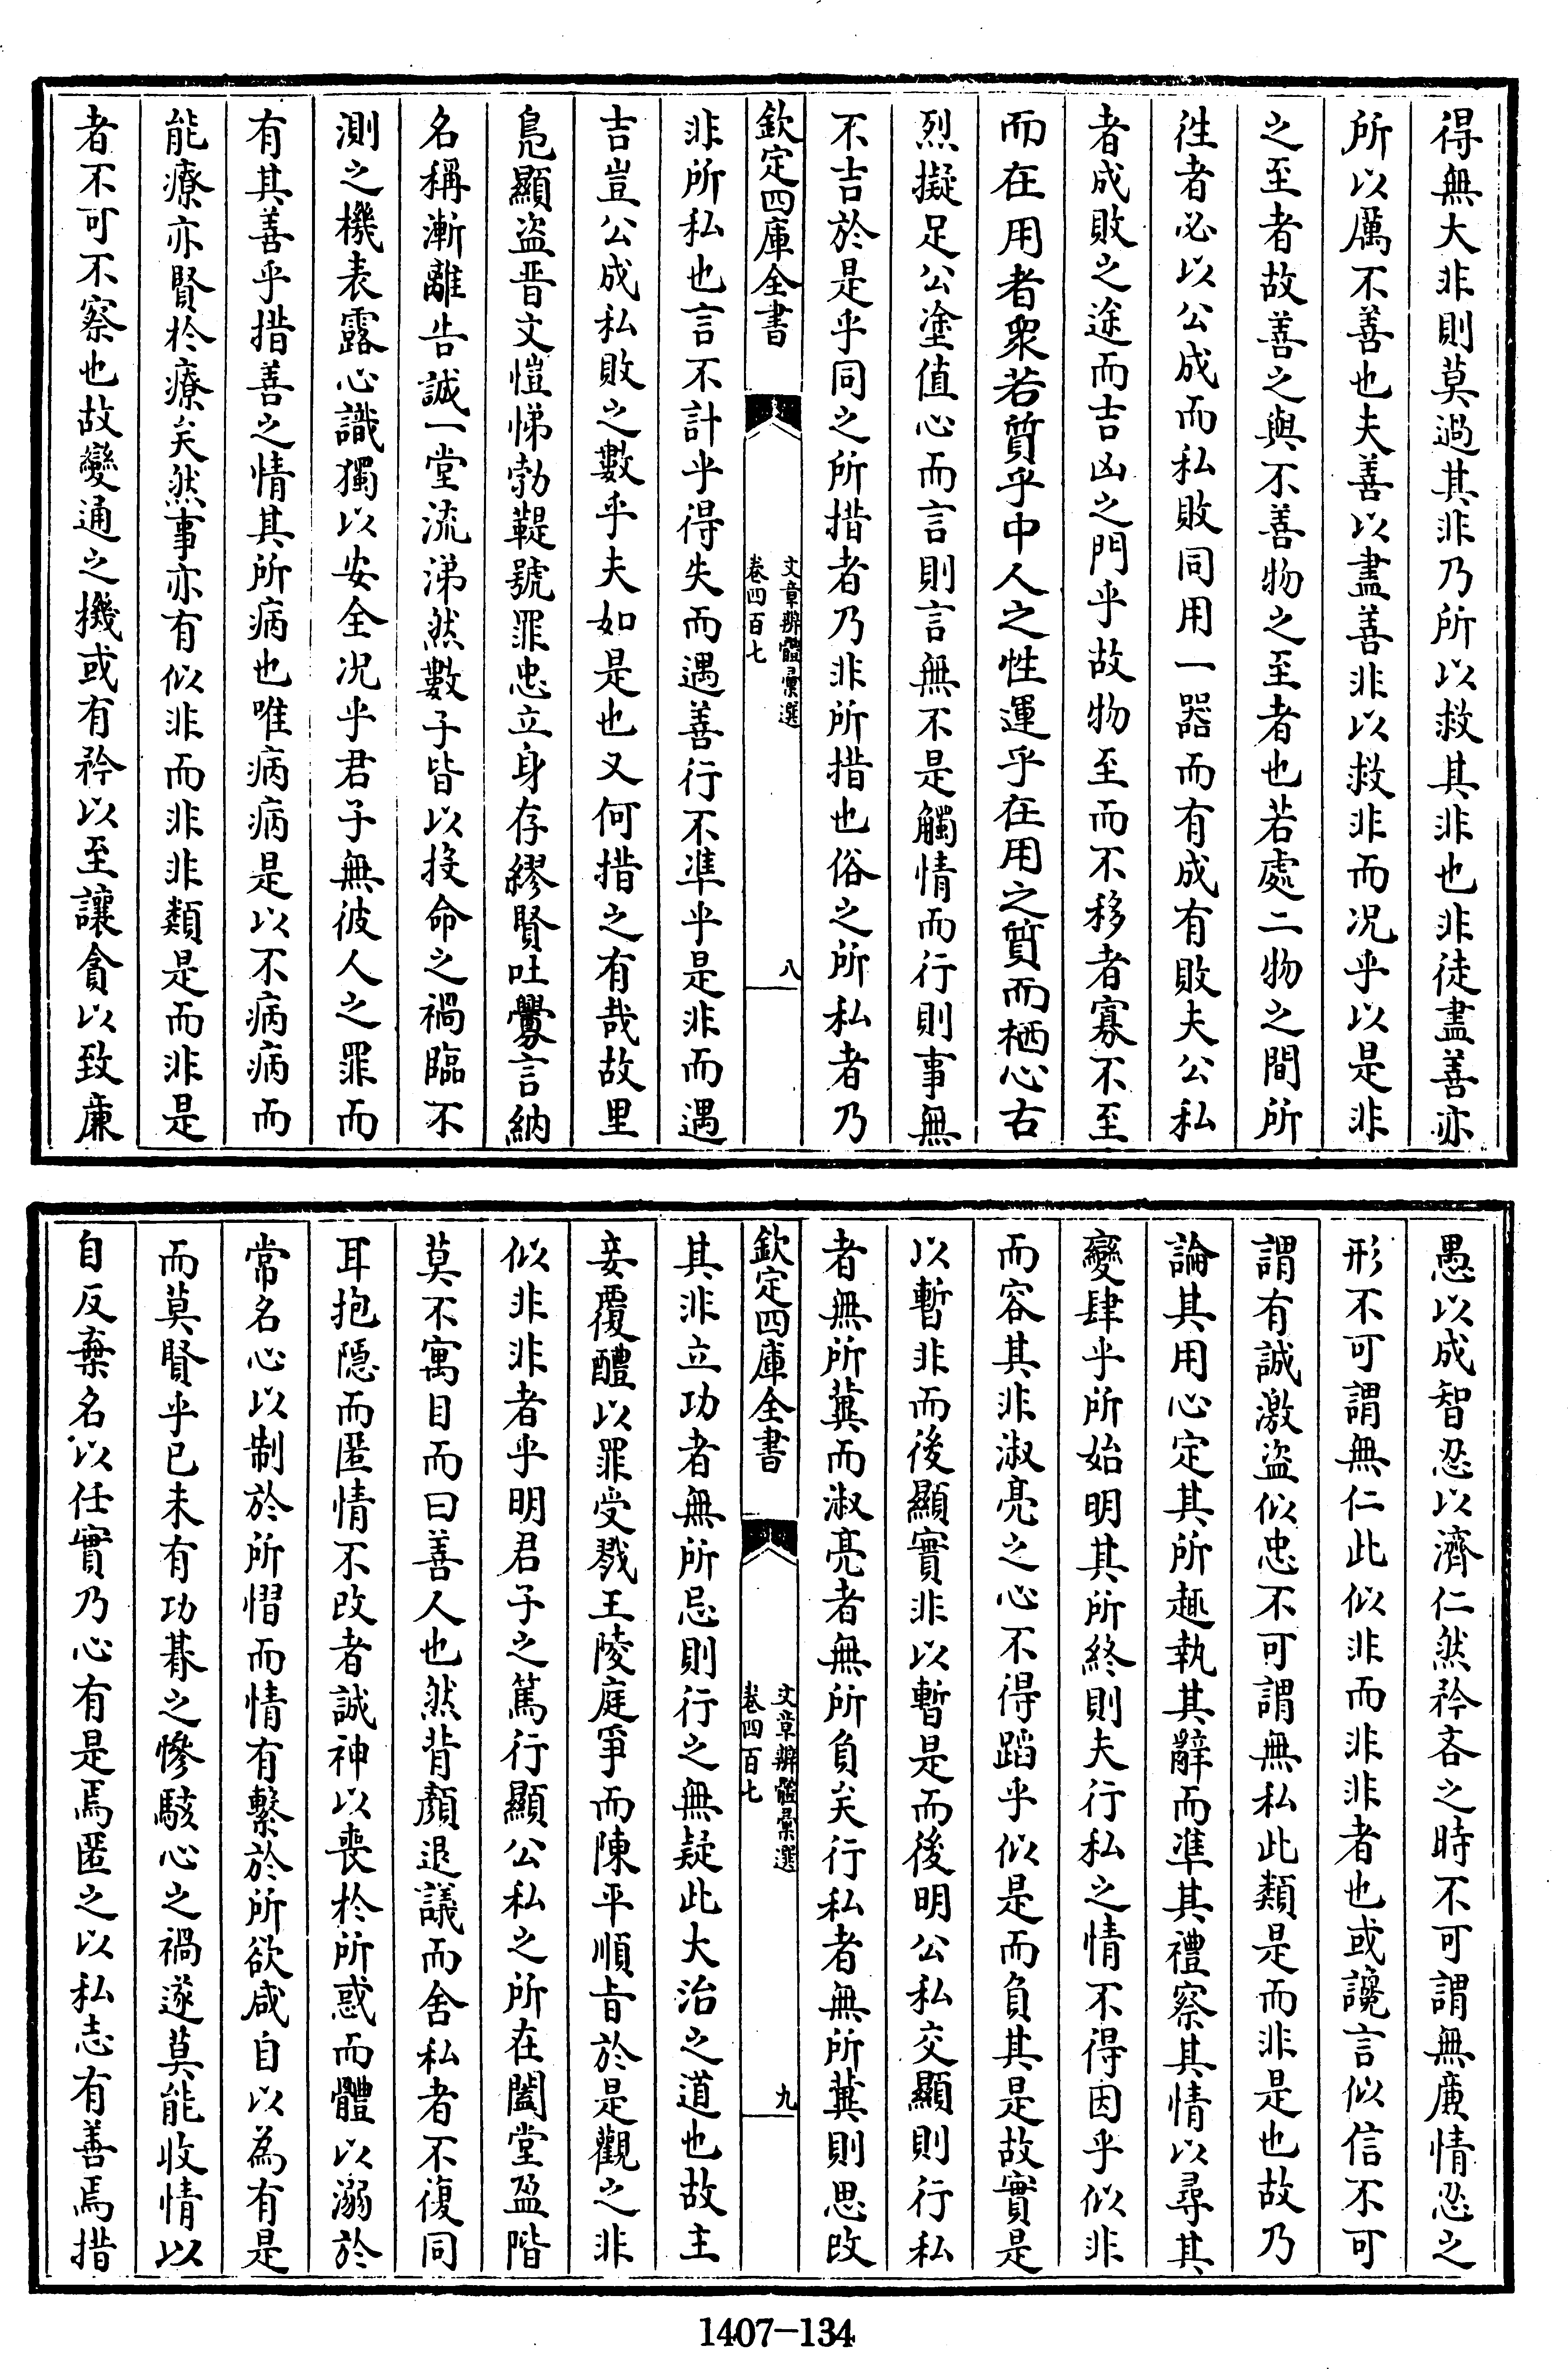 得無大非則莫過其非乃所以救其非也非徒盡善亦
所以厲不善也夫善以盡善非以救非而况乎以是非
之至者故善之與不善物之至者也若處二物之間所
徃者必以公成而私敗同用一器而有成有敗夫公私
者成敗之途而吉凶之門乎故物至而不移者寡不至
而在用者衆若質乎中人之性運乎在用之質而栖心右
烈擬足公塗值心而言則言無不是觸情而行則事無
不吉於是乎同之所措者乃非所措也俗之所私者乃
欽定四庫全書
文章辨體彙選
卷四百七
八
非所私也言不計乎得失而遇善行不凖乎是非而遇
吉豈公成私敗之數乎夫如是也又何措之有哉故里
鳬顯盜晋文愷悌勃鞮號罪忠立身存繆賢吐釁言納
名稱漸離告誠一堂流涕然數子皆以投命之禍臨不
測之機表露心識獨以安全况乎君子無彼人之罪而
有其善乎措善之情其所病也唯病病是以不病病而
能療亦賢於療矣然事亦有似非而非非類是而非是
者不可不察也故變通之機或有矜以至讓貪以致亷
愚以成智忍以濟仁然矜吝之時不可謂無亷情忍之
形不可謂無仁此似非而非非者也或讒言似信不可
謂有誠激盜似忠不可謂無私此類是而非是也故乃
論其用心定其所趣執其辭而凖其禮察其情以尋其
變肆乎所始明其所終則夫行私之情不得因乎似非
而容其非淑亮之心不得蹈乎似是而負其是故實是
以暫非而後顯實非以暫是而後明公私交顯則行私
者無所冀而淑亮者無所負矣行私者無所冀則思改
欽定四庫全書
文章辨體彙選
卷四百七
九
其非立功者無所忌則行之無疑此大治之道也故主
妾覆醴以罪受戮王陵庭爭而陳平順旨於是觀之非
似非非者乎明君子之篤行顯公私之所在闔堂盈階
莫不寓目而曰善人也然背顏退議而舍私者不復同
耳抱隱而匿情不改者誠神以喪於所惑而體以溺於
常名心以制於所慴而情有繫於所欲咸自以為有是
而莫賢乎已未有功朞之慘駭心之禍遂莫能收情以
自反棄名以任實乃心有是焉匿之以私志有善焉措
1407-134